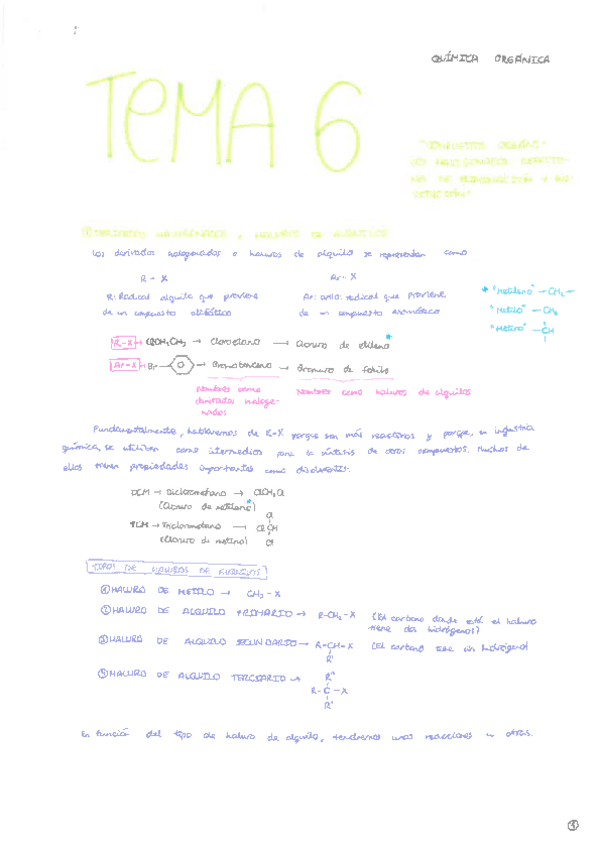 QUÍMICA ORGÁNICA
TEMA 6
Los derivados halogenados o haluros de alquilo se representan como
R - X
Ar - X
R: Radical alquilo que proviene de un compuesto alifático
Ar: arilo: radical que proviene de un compuesto aromático
* "Metileno" - CH2 -
"Metilo" - CH3
"Metino" - CH
R-X → ClCH2CH3 → Cloroetano → Cloruro de etileno *
Ar-X → Br - → Bromobenceno → Bromuro de fenilo
Nombres como derivados halogenados
Nombres como haluros de alquilos
Fundamentalmente, hablaremos de R-X porque son más reactivos y porque, en industria
química, se utilizan como intermedios para la síntesis de otros compuestos. Muchos de
ellos tienen propiedades importantes como disolventes:
DCM → Diclorometano → ClCH2Cl
(Cloruro de metileno*)
TCM → Triclorometano →
Cl
Cl CH
Cl
(Cloruro de metino)
TIPOS DE HALUROS DE ALQUILOS
① HALURO DE METILO → CH3 - X
② HALURO DE ALQUILO PRIMARIO → R-CH2-X (El carbono donde está el haluro
tiene dos hidrógenos)
③ HALURO DE ALQUILO SECUNDARIO → R-CH-X (El carbono tiene un hidrógeno)
R'
HALURO DE ALQUILO TERCIARIO →
R''
R-C-X
R'
En función del tipo de haluro de alquilo, tendremos unas reacciones u otras.